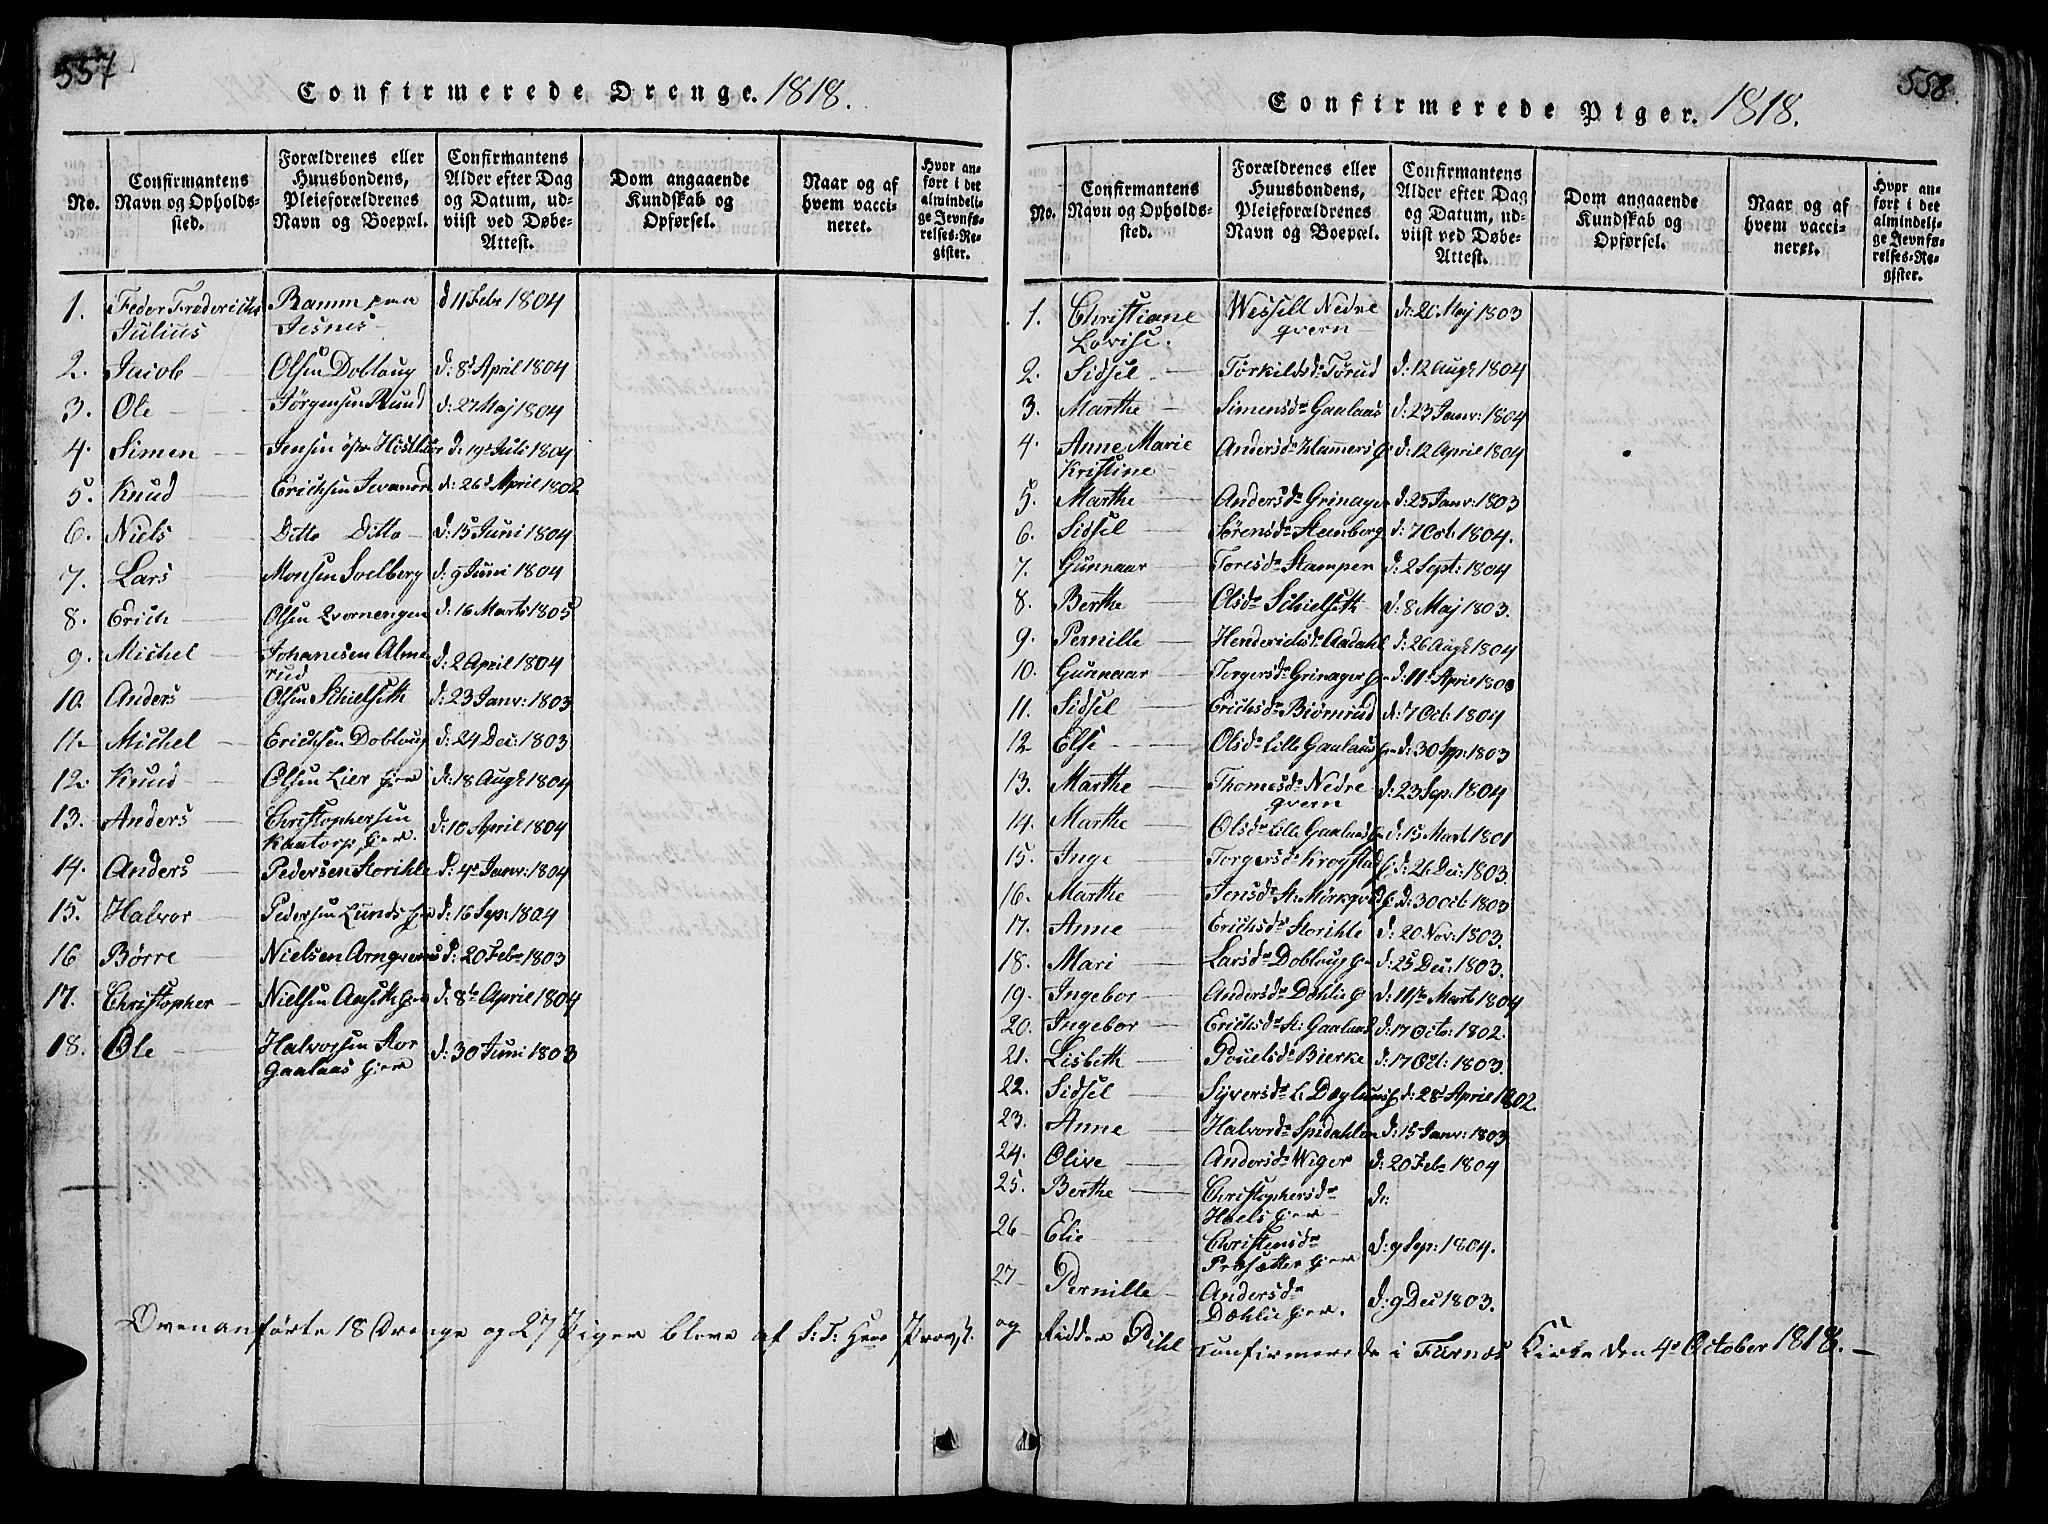 557
Confirmerede Drenge. 1818.
No.
Confirmantens Navn og Opholds-sted.
Forældrenes eller Huusbondens, Pleieforældrenes Navn og Boepæl.
Confirmantens Alder efter Dag og Datum, ud-viist ved Døbe-Attest.
Dom angaaende Kundskab og Opførsel.
Naar og af hvem vacci-neret.
Hvor an-ført i det almindeli-ge Jevnfø-relses-Re-gister.
1. Feder Frederichs Ramm paa d 11 Febr 1804
Julius Jesnes
2. Jacob Olsen Dobloug d: 8de April 1804
3. Ole Jørgensen Rund d: 27 Maj 1804
4. Simen Jensen d: 19de Juli 1804
5. Knud Erichsen d: 26de April 1802
6. Niels Ditto Ditto d: 15 Juni 1804
7. Lars Monsen Soelberg d: 9 Juni 1804
8. Erich Olsen Qvernengen d: 16 Marts 1805
9. Michel Johanesen Alme
rud d: 2 April 1804
10. Anders Olsen Schielseth d: 23 Janr: 1803
11. Michel Erichsen Dobloug d: 24 Dec: 1803
12. Knud Olsen Lier Eier d: 18 Augt 1804
13. Anders Christophersen
Kaatorp Eier. d: 10 April 1804
14. Anders Pedersen Storihle d: 4de Janr: 1804
15. Halvor Pedersen Lunds Eie d: 16 Sep: 1804
16 Børre Nielsen Arnqvernes d: 20 Febr 1803
17. Christopher Nielsen Aaseth Eier d: 8de April 1804
18. Ole Halvorsen Stor
Gaalaas Eier d: 30 Juni 1803
558.
Confirmerede Piger. 1818.
No.
Confirmantens Navn og Opholds-sted.
Forældrenes eller Huusbondens, Pleieforældrenes Navn og Boepæl.
Confirmantens Alder efter Dag og Datum, ud-viist ved Døbe-Attest.
Dom angaaende Kundskab og Opførsel.
Naar og af hvem vacci-neret.
Hvor an-ført i det almindeli-ge Jevnfø-relses-Re-gister.
1. Christiane Wessell Nedre d: 21 Maj 1803
Lovise. qvern
2. Sidsel Torkildsdr Torud d: 12 Augt 1804
3. Marthe Simensdr Gaalaas d: 23 Janr: 1804
4. Anne Marie Andersdr Hammers E d: 12 April 1804
Kristine
5. Marthe Andersdr Grinager d: 25 Janr: 1803
6. Sidsel Sørensdr Stenberg d: 7 Oct: 1804.
7. Gunnaar Toresdr Stampen d: 2 Sept: 1804
8. Berthe Olsdr Schielseth d: 8 Maj 1803.
9. Pernille Henderichsdr Aadahl d: 26 Augt 1804
10. Gunnaar Torgersdr Grinager Eie d: 11te April 1803
11. Sidsel Erichsdr Biørnrud d: 7 Oct: 1804
12 Else Olsdr Lille Gaalaas Eie d: 30 Sep: 1803
13. Marthe Thomesdr Nedre
qvern d: 23 Sep: 1804
14. Marthe Olsdr Lille Gaalaas Eie d: 15 Mart 1801
15. Inge Torgersdr Krogstad E: d: 21 Dec: 1803.
16. Marthe Jensdr St: Mørkqved E d: 30 Oct: 1803
17. Anne Erichsdr Storihle d: 20 Nov: 1803.
18. Mari Larsdr Dobloug Eie d: 25 Dec: 1803.
19. Ingebor Andersdr Dæhlie E d: 11te Mart 1804
20. Ingebor Erichsdr St: Gaalaas d: 17 Octo: 1802.
21. Lisbeth Pouelsdr Bierke d: 17 Oct: 1803.
22. Sidsel Syversdr L: Døglums E d: 28de April 1802.
23. Anne Halvordr Spidahlen d: 15 Janr: 1803
24. Olive Andersdr Wiger d: 20 Febr 1804
25. Berthe Christophersdr d:
Hoels Eier
26 Elie Christensdr
Præsætter Eier d: 9 Sep: 1804.
27 Pernille Andersdr
Dæhlie Eier. d: 9 Dec 1803.
Ovenanførte 18 Drenge og 27 Piger bleve af S: T: Herr Provst og Ridder Pihl Confirmerede i Furnæs Kirke den 4de October 1818.